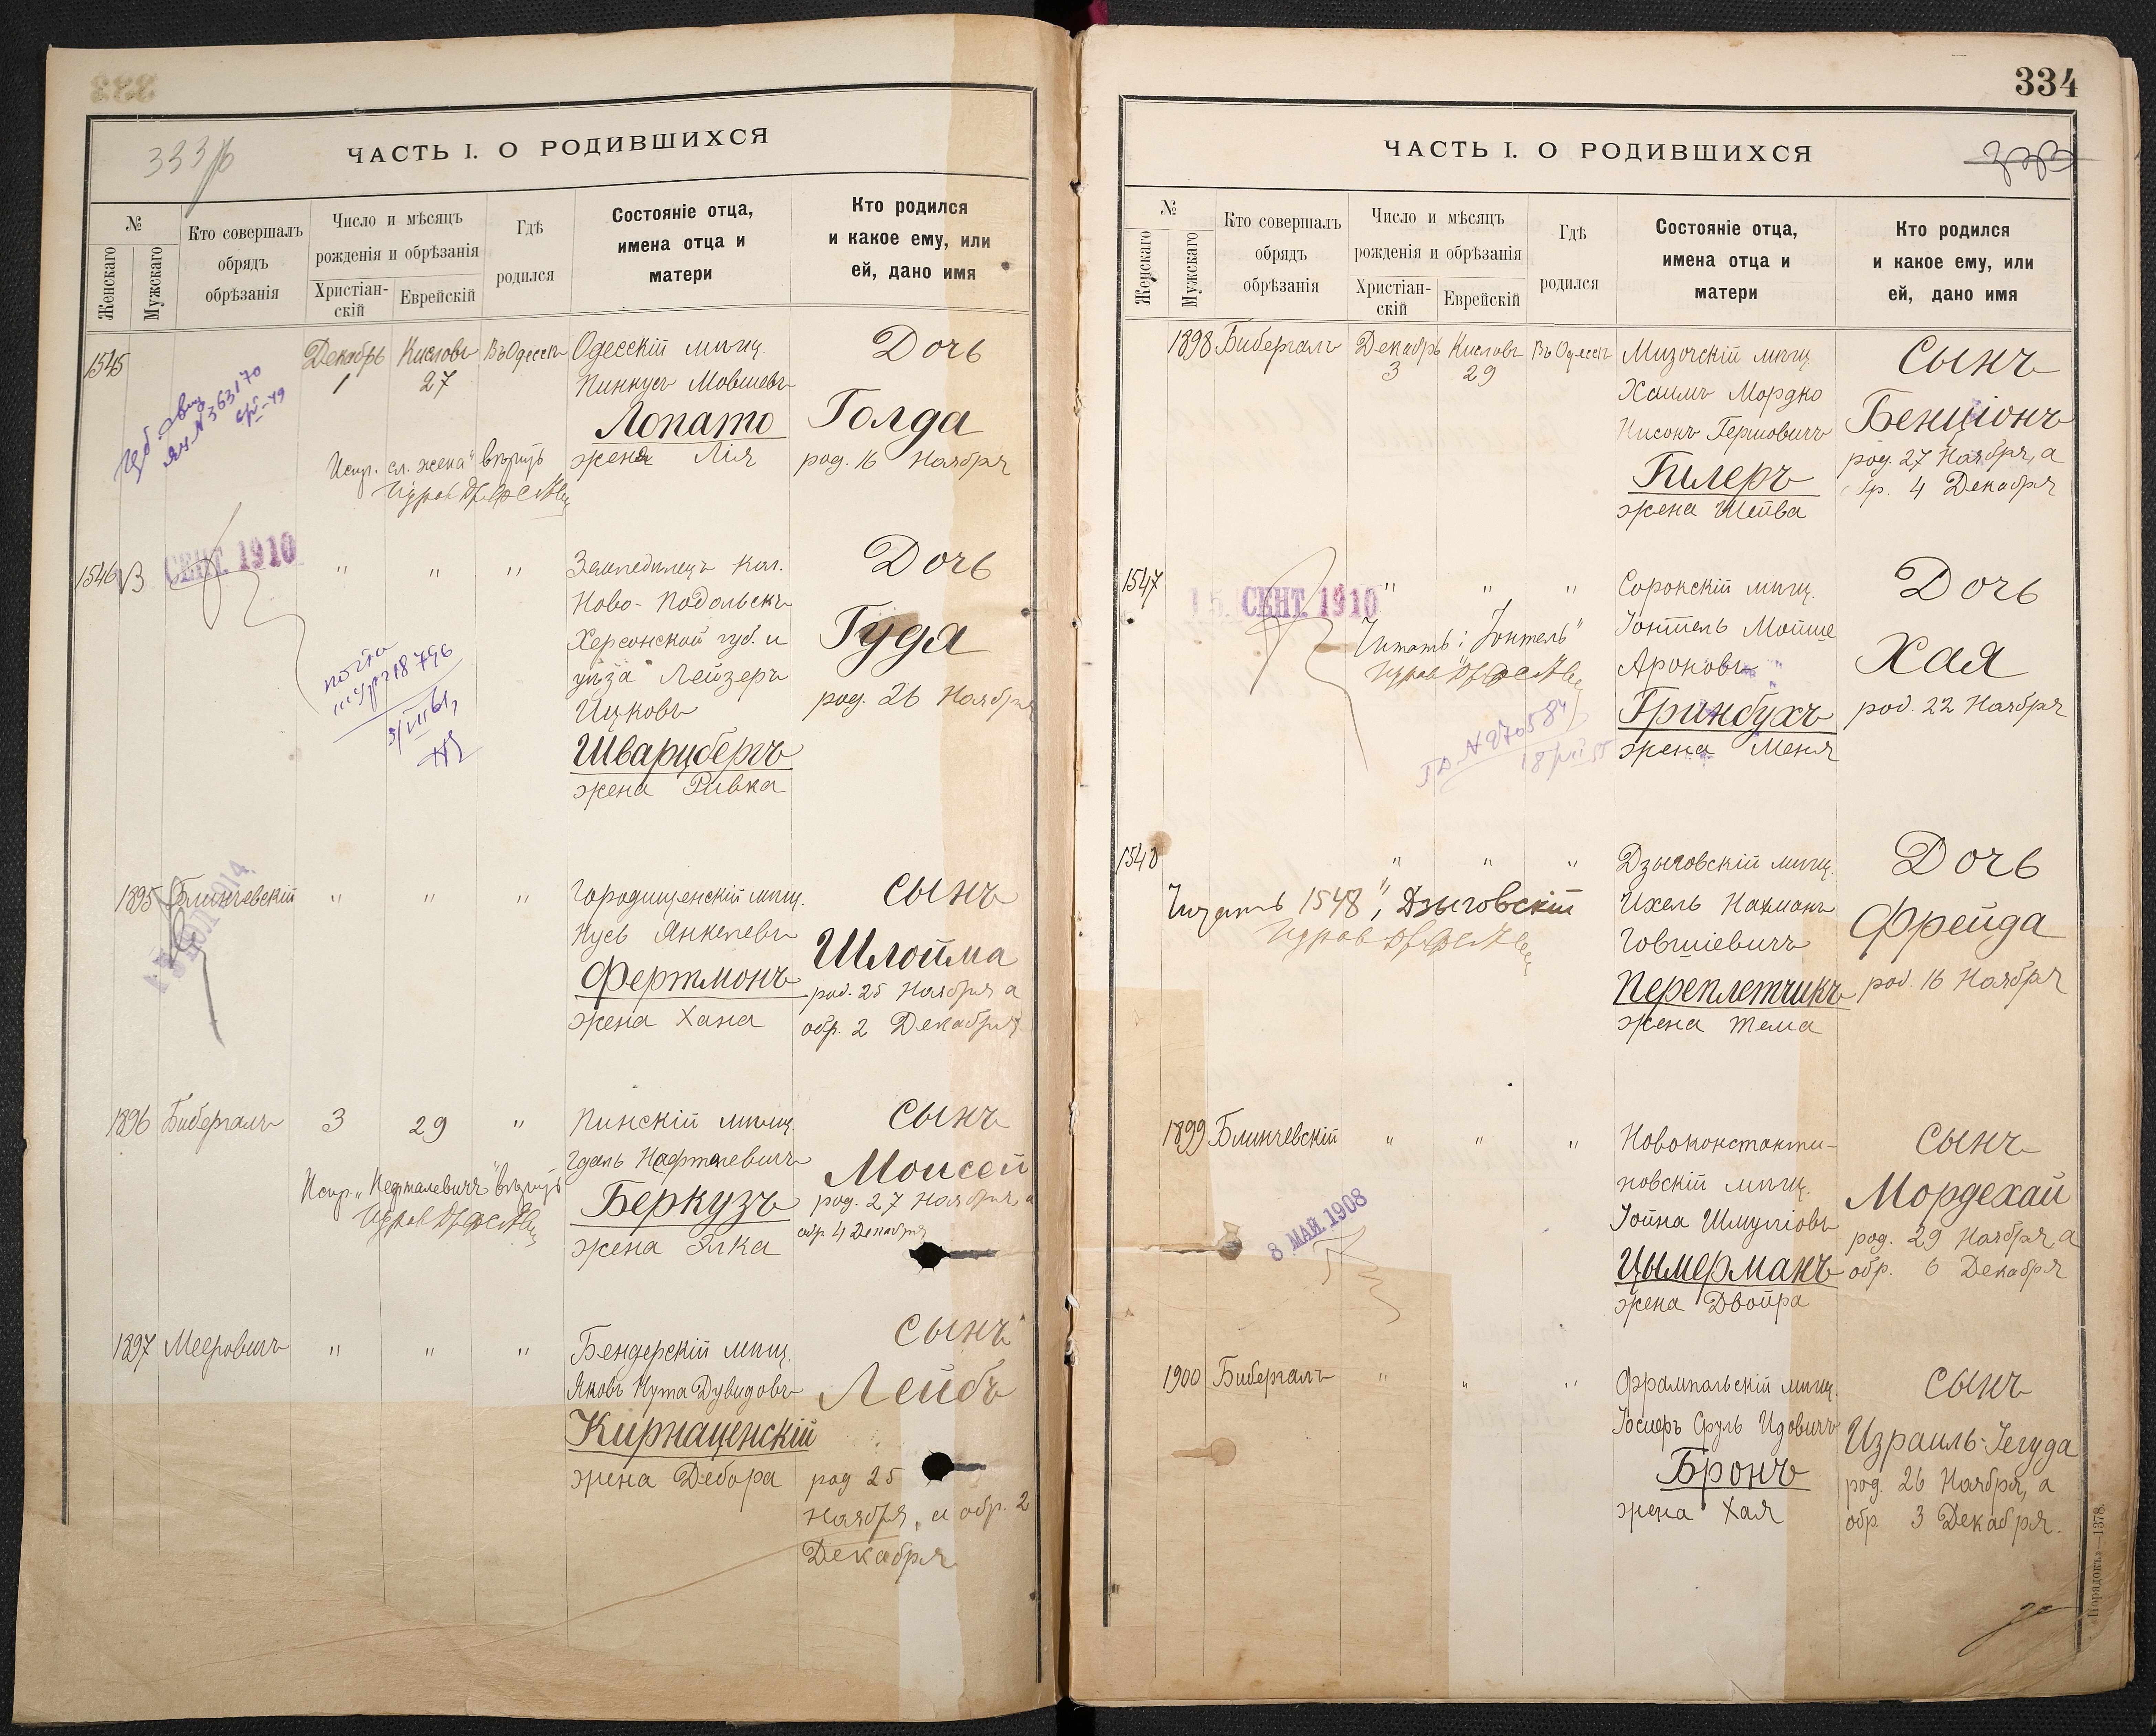 333
333 об
ЧАСТЬ I. О РОДИВШИХСЯ
№
Женскаго
Мужскаго
Кто совершалъ
обрядъ
обрѣзанія
Число и мѣсяцъ
рожденія и обрѣзанія
Христіан-
скій
Еврейскій
Гдѣ
родился
Состояніе отца,
имена отца и
матери
Кто родился
и какое ему, или
ей, дано имя
1545
Декабрь
1
Кислевъ
27
Въ Одессѣ
Одесскій мѣщ.
Пинкусъ Мовшевъ
Лопато
жена Лія
Дочь
Голда
род. 16 Ноября
№ 363170
Испр. сл. "жена" вѣрить
1546
СЕНТ. 1910
"
"
"
Земледѣлецъ кол.
Ново-Подольскъ
Херсонской губ. и
уѣзда Лейзеръ
Ицковъ
Шварцбергъ
жена Ривка
Дочь
Гуда
род. 26 Ноября
1895
Блинчевскій
"
"
"
Городищенскій мѣщ.
Нусь Янкелевъ
Фертмонъ
жена Хана
сынъ
Шлойма
род. 25 Ноября а
обр. 2 Декабря
1896
Бибергалъ
3
29
"
Пинскій мѣщ.
Гдаль Нафталевичъ
Беркузъ
жена Элка
сынъ
Моисей
род. 27 Ноября, а
обр 4 Декабря
Испр. "Нафталевичъ" вѣрить
1897
Мееровичъ
"
"
"
Бендерскій мѣщ.
Яковъ Нута Дувидовъ
Кирнаценскій
жена Дебора
сынъ
Лейбъ
род 25
Ноября, а обр. 2
Декабря
334
ЧАСТЬ I. О РОДИВШИХСЯ
№
Женскаго
Мужскаго
Кто совершалъ
обрядъ
обрѣзанія
Число и мѣсяцъ
рожденія и обрѣзанія
Христіан-
скій
Еврейскій
Гдѣ
родился
Состояніе отца,
имена отца и
матери
Кто родился
и какое ему, или
ей, дано имя
1898
Бибергалъ
Декабрь
3
Кислевъ
29
Въ Одессѣ
Мизочскій мѣщ.
Хаимъ Мордко
Нисонъ Гершовичъ
Гилеръ
жена Шейва
Сынъ
Бенціонъ
род. 27 Ноября, а
обр. 4 Декабря
1547
15 СЕНТ. 1910
"
"
"
Читать: "Іонтель"
Сорокскій мѣщ.
Іонтель Мойше
Ароновъ
Гринбухъ
жена Меня
Дочь
Хая
род. 22 Ноября
1548
"
"
"
Читать 1548, "Дзыговскій
Дзыговскій мѣщ.
Ихель Нахманъ
Говшіевичъ
Переплетчикъ
жена Тема
Дочь
Фрейда
род. 16 Ноября
1899
Блинчевскій
"
"
"
8 МАЙ. 1908
Новоконстанти-
новскій мѣщ.
Іойна Шмуліовъ
Цымерманъ
жена Двойра
сынъ
Мордехай
род. 29 Ноября, а
обр. 6 Декабря
1900
Бибергалъ
"
"
"
Фрампольскій мѣщ.
Іосифъ Сруль Идовичъ
Бронъ
жена Хая
сынъ
Израиль-Іегуда
род. 26 Ноября, а
обр. 3 Декабря.
Порядокъ—1378.